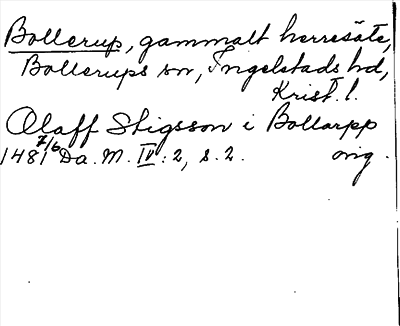 Bollerup, gammalt herresäte,
Bollerups sn, Ingelstads hd,
Krist. l.
Olaff Stigsson i Bollarpp
1481 7/6 Da. M. IV:2, s. 2. orig.